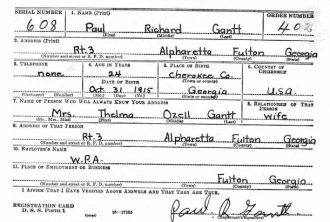 SERIAL NUMBER 1. NAME (Print) ORDER NUMBER
608 Paul Richard Gantt 402
(First) (Middle) (Last)
2. ADDRESS (Print)
Rt.3 Alpharetta Fulton Georgia
(Number and street or R. F. D. number) (Town) (County) (State)
3. TELEPHONE 4. AGE IN YEARS 5. PLACE OF BIRTH 6. COUNTRY OF CITIZENSHIP
none 24 Cherokee Co.
DATE OF BIRTH (Town or county)
Oct. 31 1915 Georgia U.S.A.
(Mo.) (Day) (Yr.) (State or country)
7. NAME OF PERSON WHO WILL ALWAYS KNOW YOUR ADDRESS 8. RELATIONSHIP OF THAT PERSON
Mrs. Thelma Ozell Gantt wife
(Mr., Mrs., Miss) (First) (Middle) (Last)
9. ADDRESS OF THAT PERSON
Rt.3 Alpharetta Fulton Georgia
(Number and street or R. F. D. number) (Town) (County) (State)
10. EMPLOYER'S NAME
W.P.A.
11. PLACE OF EMPLOYMENT OR BUSINESS
Fulton Georgia
(Number and street or R. F. D. number) (Town) (County) (State)
I AFFIRM THAT I HAVE VERIFIED ABOVE ANSWERS AND THAT THEY ARE TRUE.
REGISTRATION CARD
D. S. S. Form 1 16-17105 Paul R. Gantt
(Registrant's signature)